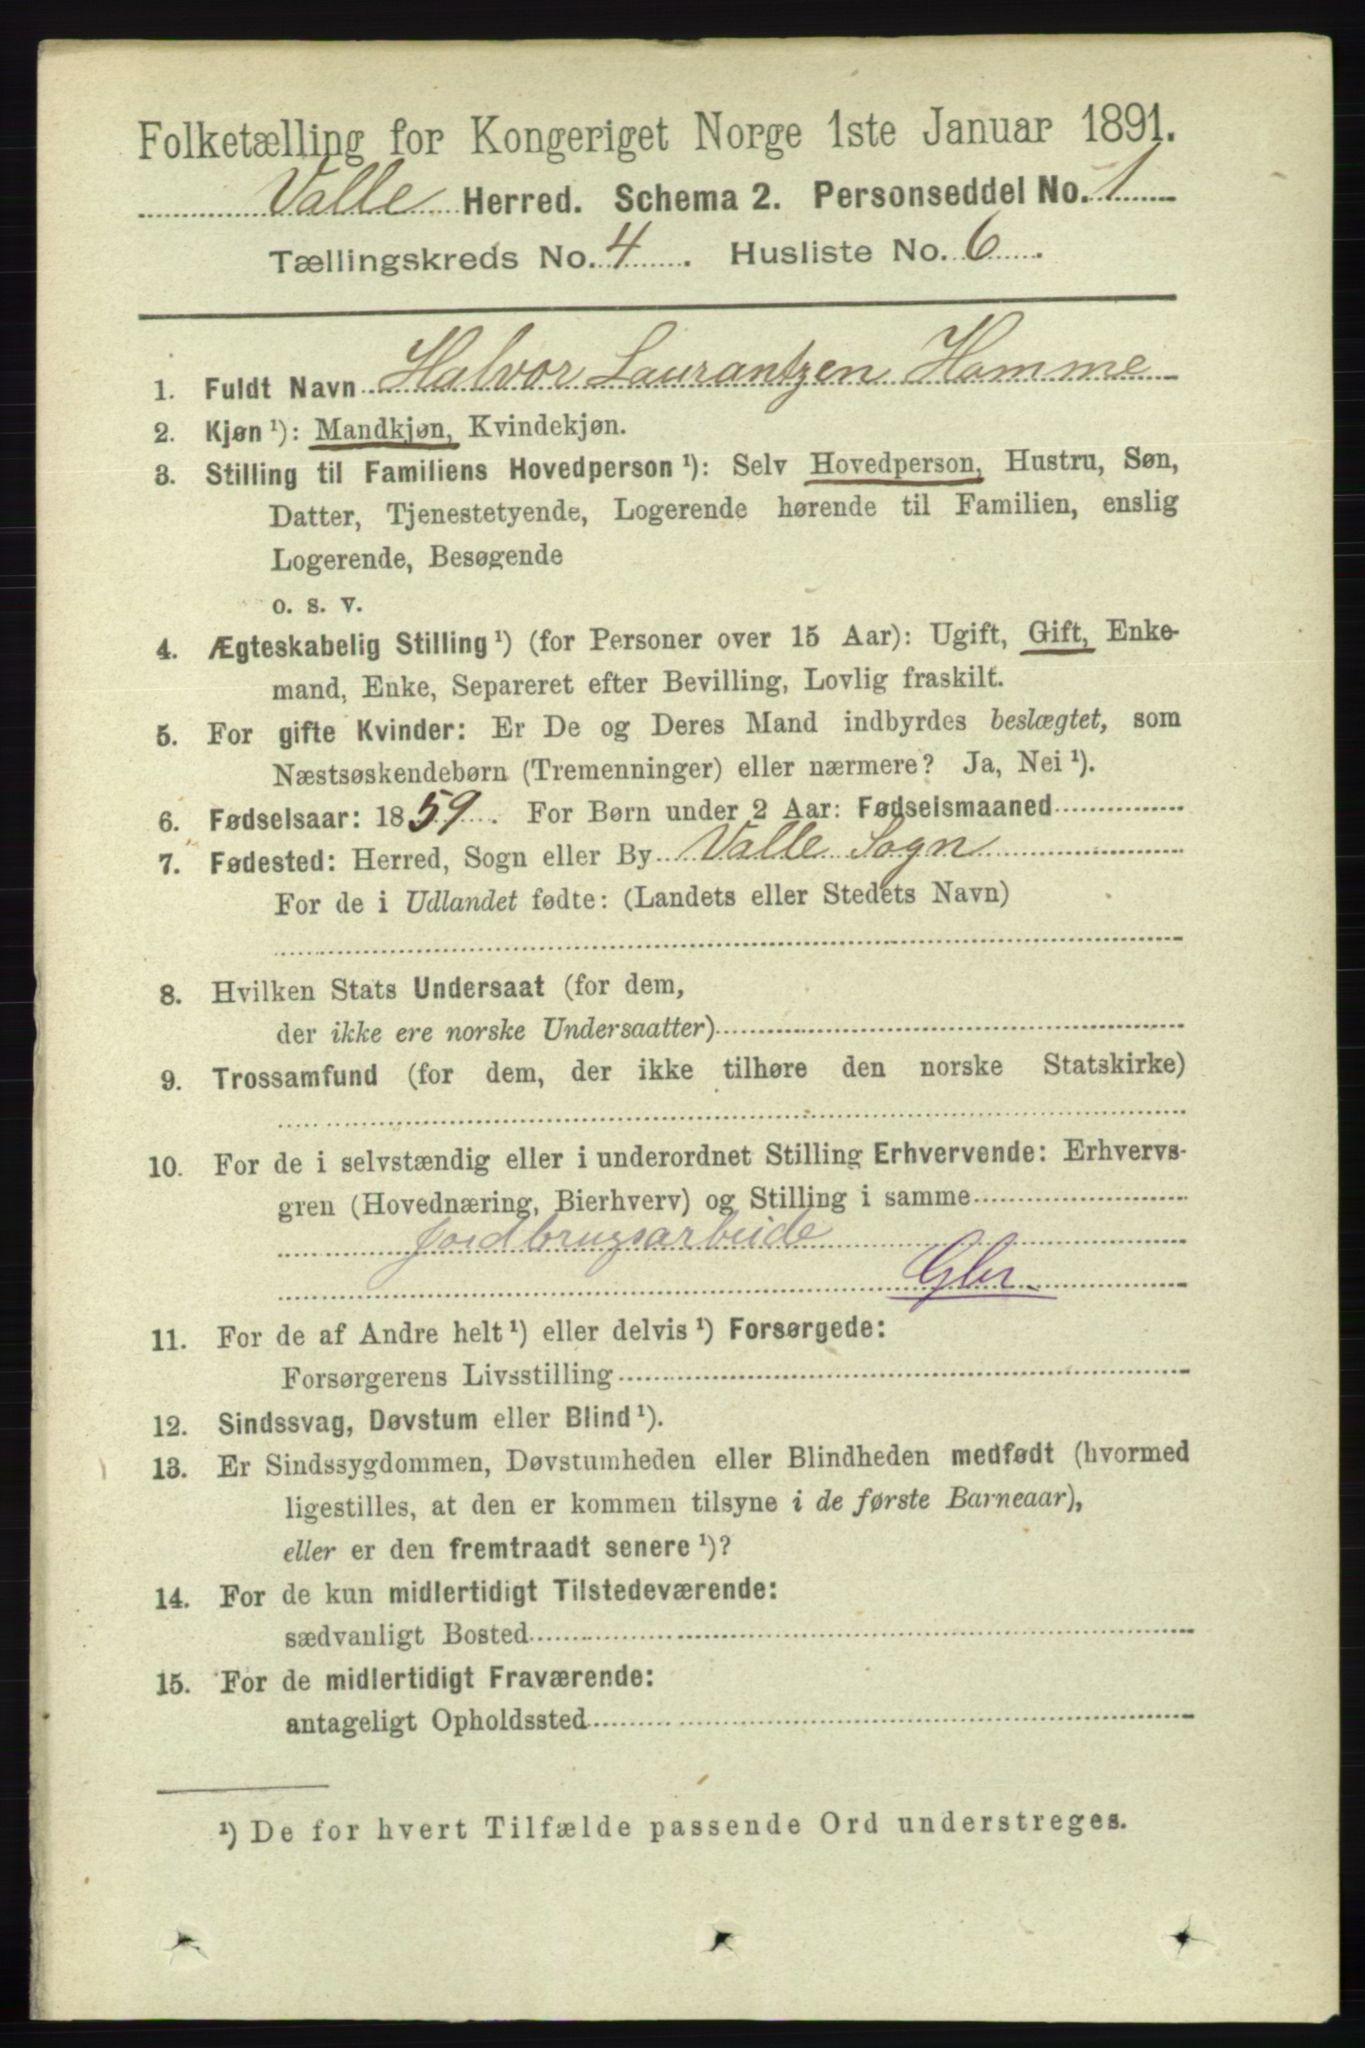 Folketælling for Kongeriget Norge 1ste Januar 1891.
Valle Herred. Schema 2. Personseddel No. 1
Tællingskreds No. 4. Husliste No. 6.
1. Fuldt Navn Halvor Laurantzen Homme
2. Kjøn ¹): Mandkjøn, Kvindekjøn.
3. Stilling til Familiens Hovedperson ¹): Selv Hovedperson, Hustru, Søn,
Datter, Tjenestetyende, Logerende hørende til Familien, enslig
Logerende, Besøgende
o. s. v.
4. Ægteskabelig Stilling ¹) (for Personer over 15 Aar): Ugift, Gift, Enke-
mand, Enke, Separeret efter Bevilling, Lovlig fraskilt.
5. For gifte Kvinder: Er De og Deres Mand indbyrdes beslægtet, som
Næstsøskendebørn (Tremenninger) eller nærmere? Ja, Nei ¹).
6. Fødselsaar: 1859. For Børn under 2 Aar: Fødselsmaaned
7. Fødested: Herred, Sogn eller By Valle Sogn
For de i Udlandet fødte: (Landets eller Stedets Navn)
8. Hvilken Stats Undersaat (for dem,
der ikke ere norske Undersaatter)
9. Trossamfund (for dem, der ikke tilhøre den norske Statskirke)
10. For de i selvstændig eller i underordnet Stilling Erhvervende: Erhvervs-
gren (Hovednæring, Bierhverv) og Stilling i samme
Jordbrugsarbeide
Gbr
11. For de af Andre helt ¹) eller delvis ¹) Forsørgede:
Forsørgerens Livsstilling
12. Sindssvag, Døvstum eller Blind ¹).
13. Er Sindssygdommen, Døvstumheden eller Blindheden medfødt (hvormed
ligestilles, at den er kommen tilsyne i de første Barneaar),
eller er den fremtraadt senere ¹)?
14. For de kun midlertidigt Tilstedeværende:
sædvanligt Bosted
15. For de midlertidigt Fraværende:
antageligt Opholdssted
¹) De for hvert Tilfælde passende Ord understreges.